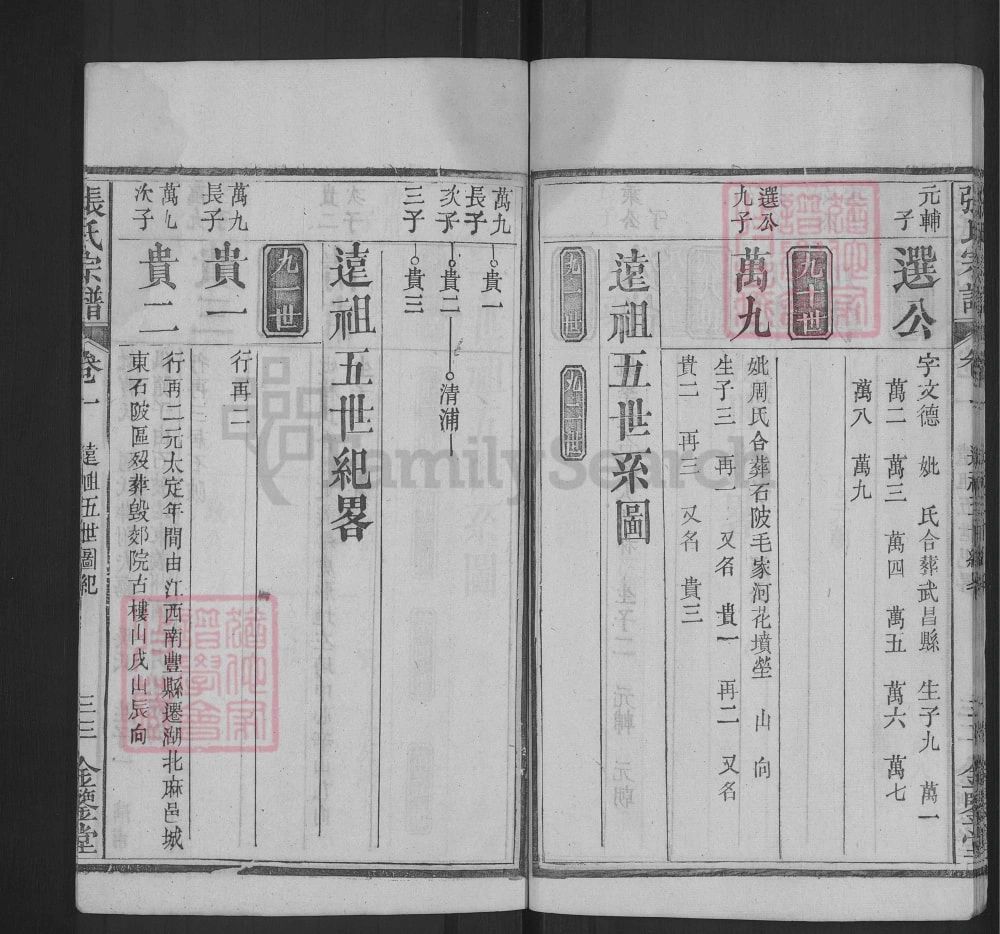 元輔
子
選公
字文德　妣　氏合葬武昌縣　生子九　萬一
萬二　萬三　萬四　萬五　萬六　萬七
萬八　萬九
九十世
選公
九子
萬九
妣周氏合葬石陂毛家河花墳塋　山　向
生子三　再一　又名　貴一　再二　又名
貴二　再三　又名　貴三
遠祖五世系圖
九一世
九二世
萬九
長子
貴一
次子
貴二
清浦
三子
貴三
遠祖五世紀畧
九一世
萬九
長子
貴一
行再一
萬九
次子
貴二
行再二元太定年間由江西南豐縣遷湖北麻邑城
東石陂區歿葬毀郊院古樓山戌山辰向
張氏宗譜
卷一
遠祖五世圖紀
三三
金鑒堂
FamilySearch